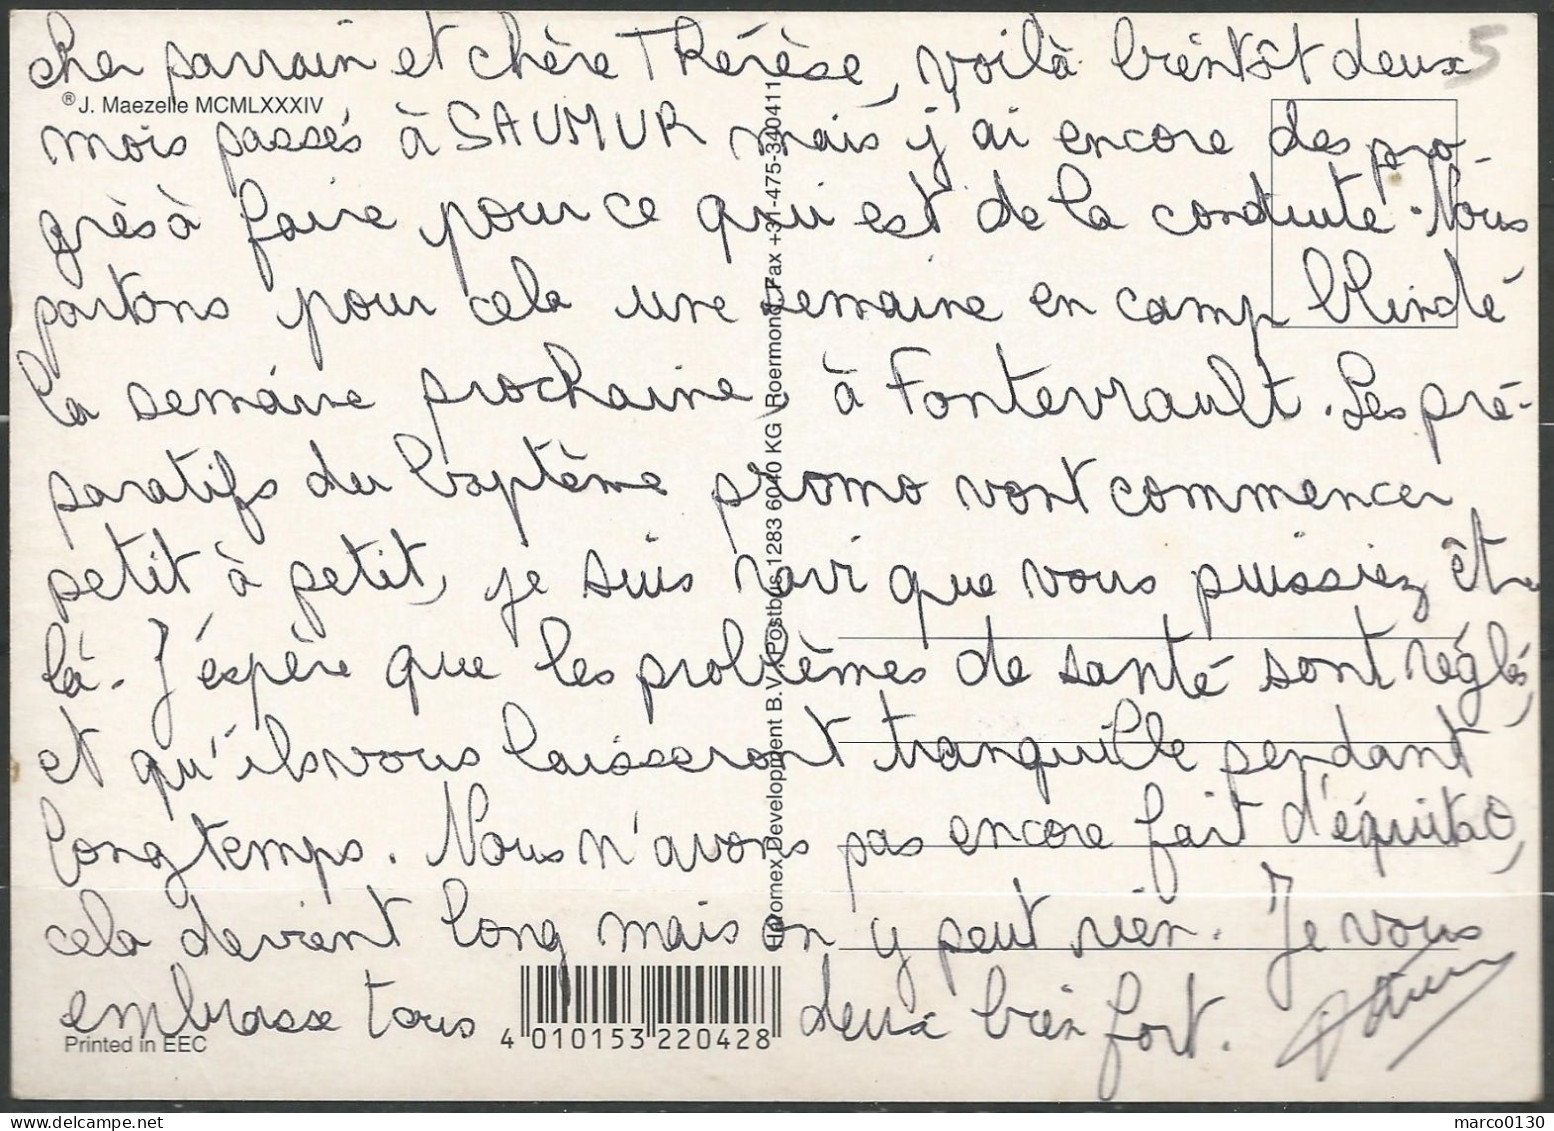 cher parrain et chère Thérèse, voilà bientôt deux
5
® J. Maezelle MCMLXXXIV
mois passés à SAUMUR mais j'ai encore des pro-
grès à faire pour ce qui est de la conduite. Nous
partons pour cela une semaine en camp blindé
la semaine prochaine, à Fontevrault. Les pré-
paratifs du baptême promo vont commencer
petit à petit, je suis ravi que vous puissiez être
là. J'éspère que les problèmes de santé sont réglés,
et qu'ils vous laisseront tranquille pendant
longtemps. Nous n'avons pas encore fait d'équitaO,
cela devient long mais on y peut rien. Je vous
embrasse tous deux bien fort.
Printed in EEC
4 010153 220428
Development B.V., Postbus 1283 6040 KG Roermond, Fax +31-475-340411
marco0130